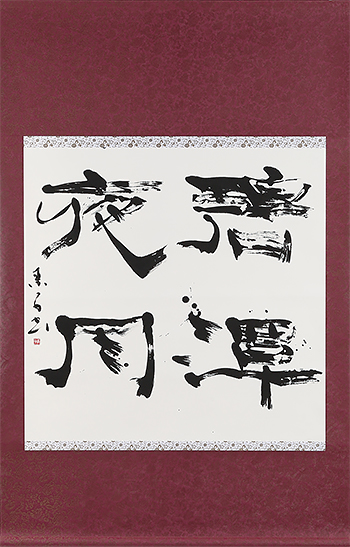 碧潭
夜月